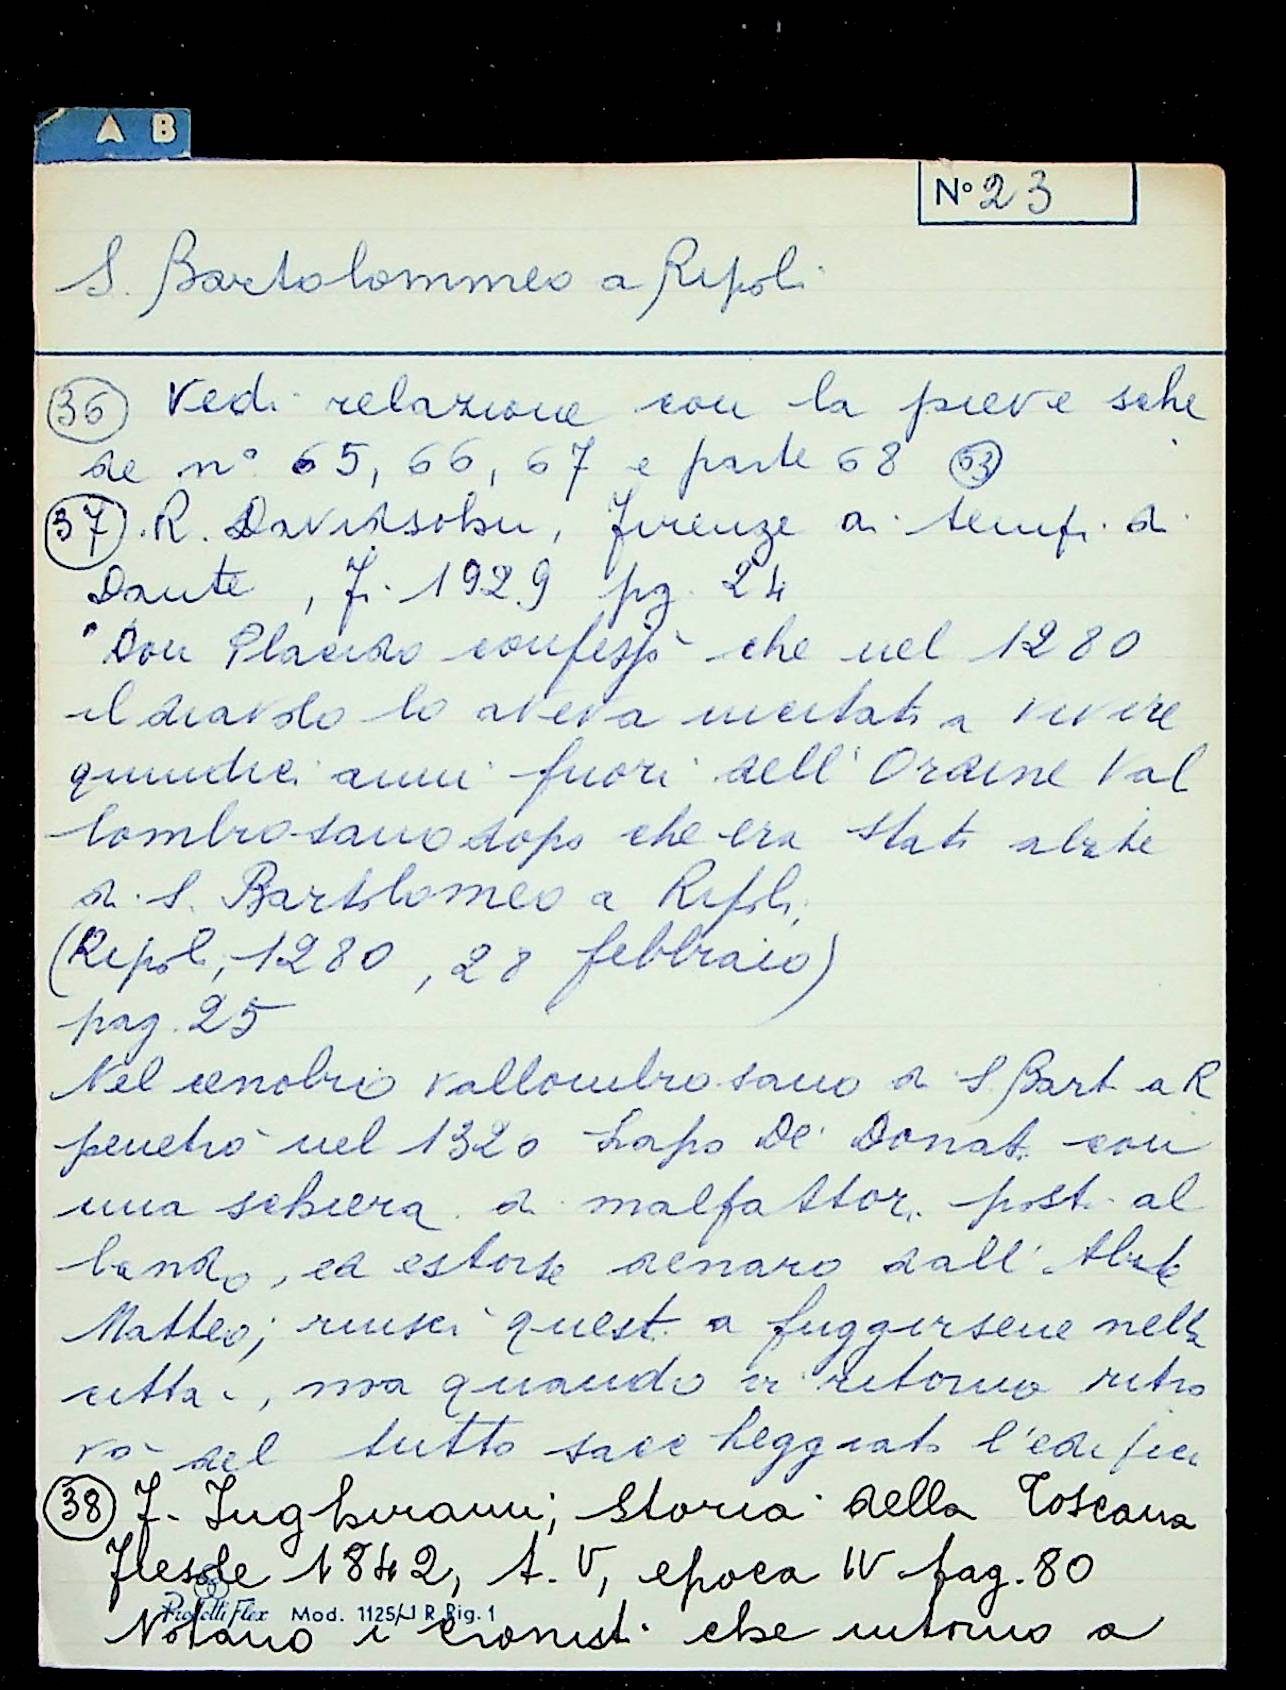 A B
N° 23
S. Bartolommeo a Ripoli
36 Vedi relazione con la pieve sche
de n° 65, 66, 67 e parte 68 63
37. R. Davidsohn, Firenze ai tempi di
Dante, Fi. 1929 pg. 24
"Don Placido confessò che nel 1280
il diavolo lo aveva incitato a vivere
quindici anni fuori dell'Ordine Val
lombrosano dopo che era stato abate
di S. Bartolomeo a Ripoli,
(Ripoli, 1280, 28 febbraio)
pag. 25
Nel cenobio vallombrosano di S. Bart a R
penetrò nel 1320 Lapo De' Donati con
una schiera di malfattori posti al
bando, ed estorse denaro dall'Abate
Matteo; riuscì questi a fuggirsene nella
città, ma quando vi ritornò ritro
vò del tutto saccheggiato l'edificio
38 F. Inghirami; Storia della Toscana
Fiesole 1842, t. V, epoca IV pag. 80
Mod. 1125/J R Rig. 1
Notano i cronisti che intorno a